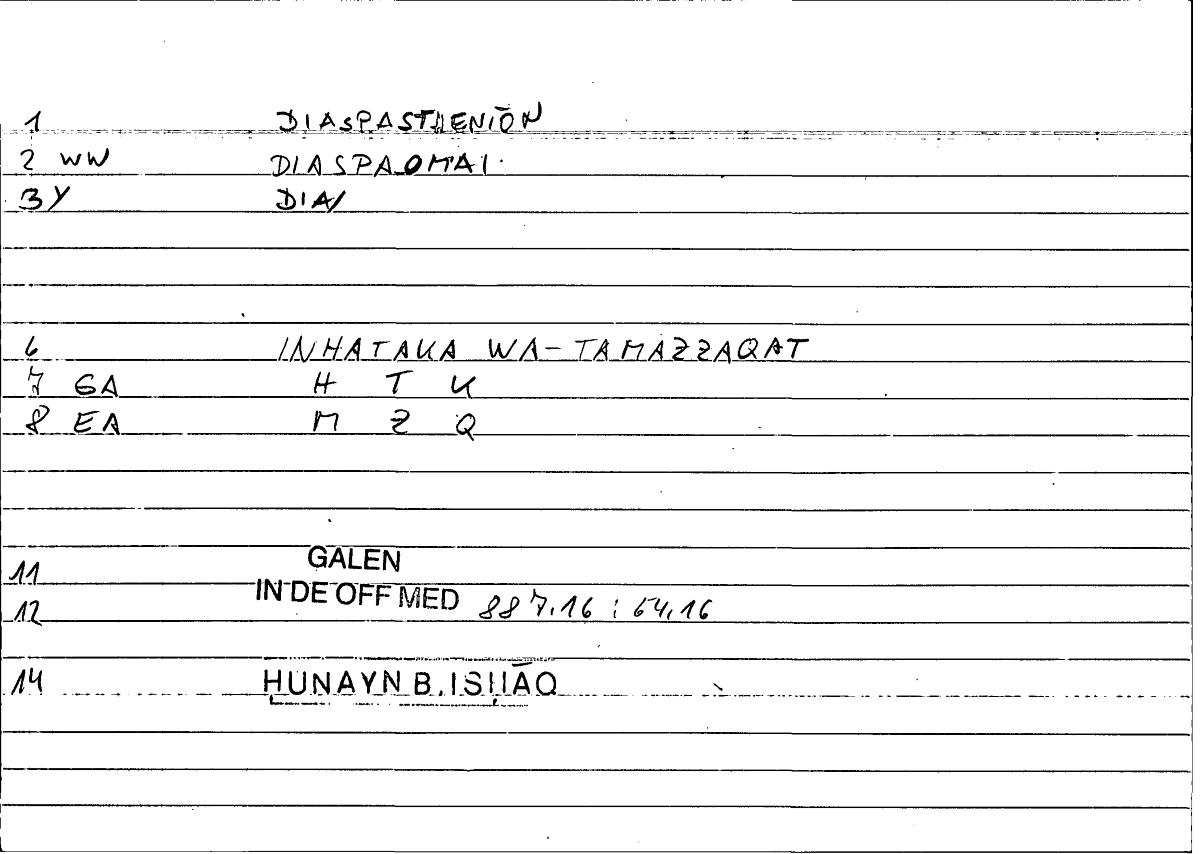 1 DIASPASTHENIŌN
2 WW DIASPAOMAI
3 Y DIA/
6 INHATAKA WA-TAMAZZAQAT
7 GA H T K
8 EA M Z Q
11 GALEN
12 IN DE OFF MED 887,16 : 64,16
14 ḤUNAYN B. ISḤĀQ